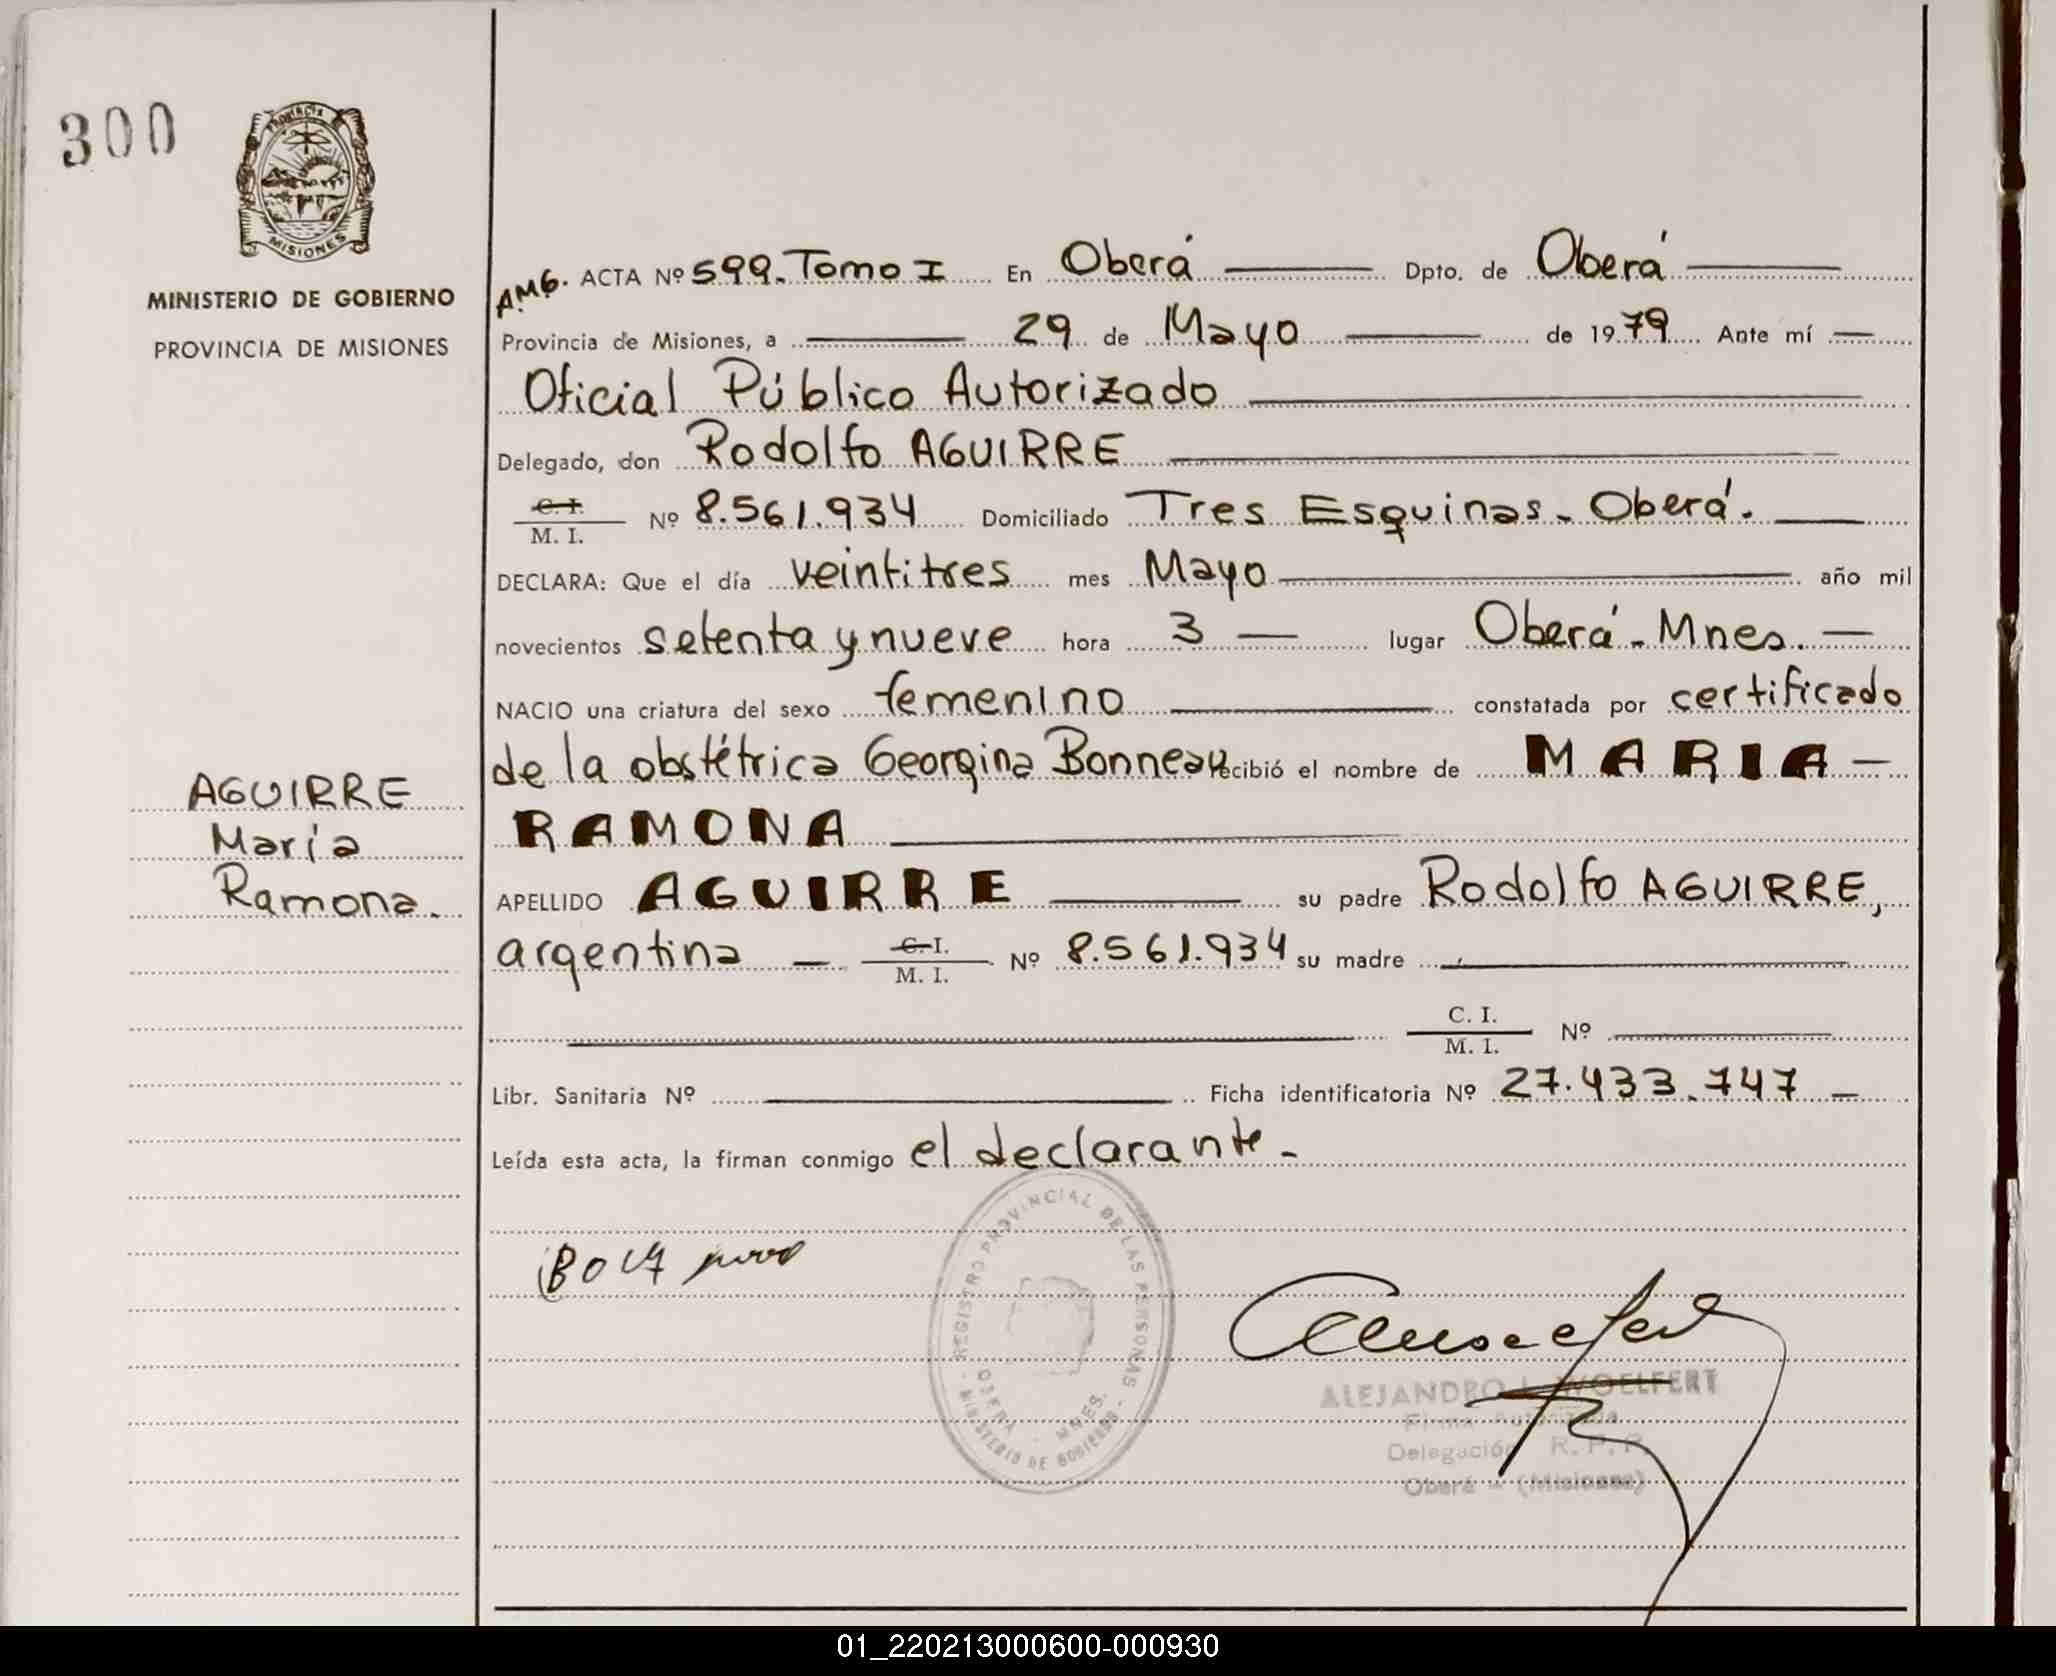 300
PROVINCIA
MISIONES
MINISTERIO DE GOBIERNO
PROVINCIA DE MISIONES
AGUIRRE
María
Ramona.
A.M.G. ACTA Nº 599. Tomo I En Oberá Dpto. de Oberá
Provincia de Misiones, a 29 de Mayo de 1979 Ante mí
Oficial Público Autorizado
Delegado, don Rodolfo AGUIRRE
C. I.
M. I. Nº 8.561.934 Domiciliado Tres Esquinas - Oberá.
DECLARA: Que el día veintitres mes Mayo año mil
novecientos setenta y nueve hora 3 lugar Oberá - Mnes.
NACIO una criatura del sexo femenino constatada por certificado
de la obstétrica Georgina Bonneau recibió el nombre de MARIA
RAMONA
APELLIDO AGUIRRE su padre Rodolfo AGUIRRE,
argentina - C. I. M. I. Nº 8.561.934 su madre
C. I.
M. I. Nº
Libr. Sanitaria Nº Ficha identificatoria Nº 27.433.747 -
Leída esta acta, la firman conmigo el declarante -
REGISTRO PROVINCIAL DE LAS PERSONAS
OBERA - MNES.
MINISTERIO DE GOBIERNO
ALEJANDRO L. WOELFERT
Firma Autorizada
Delegación R. P. P.
Oberá - (Misiones)
01_220213000600-000930